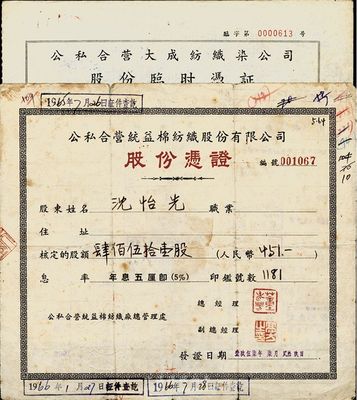 臨字第 0000613 号
公私合营大成纺织染公司
股份临时凭証
1966年7月26日証件查訖
公私合营統益棉紡織股份有限公司
股份憑證
編號 001067
564
股東姓名 沈怡光 職業
住址
核定的股額 肆佰伍拾壹股 (人民幣 451.—)
息率 年息五厘卽(5%) 印鑑號數 1181
總經理
公私合营統益棉紡織廠總管理處
副總經理
發證日期
1966年1月27日証件查訖
1966年7月28日証件查訖